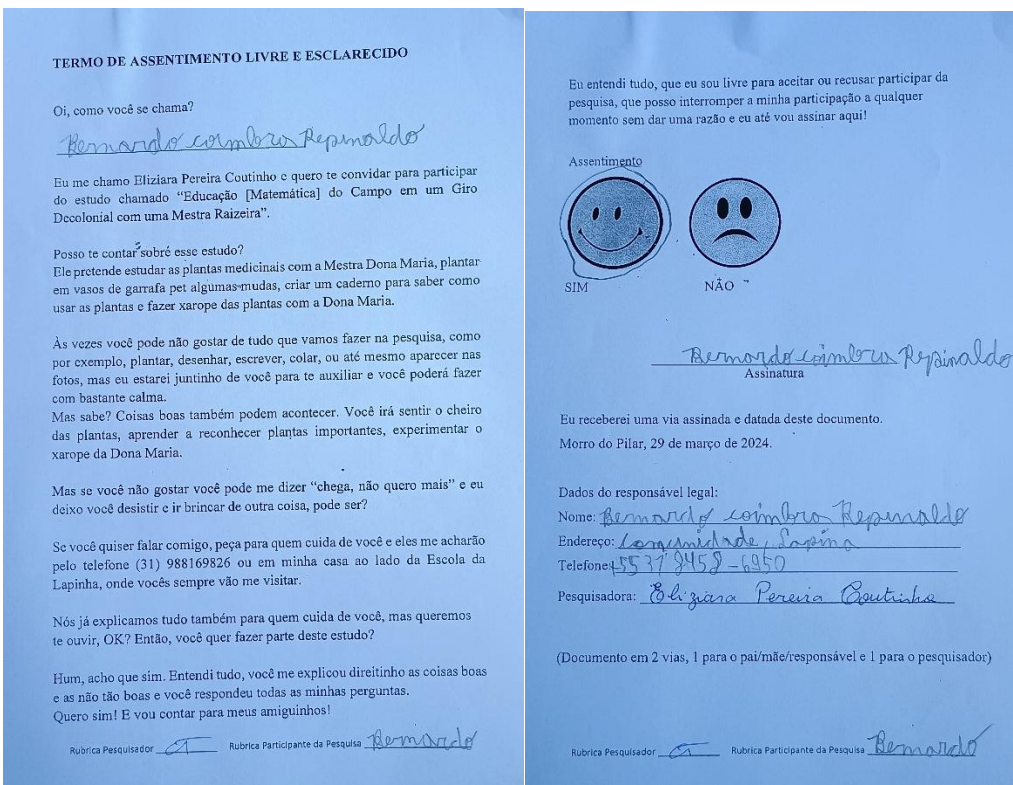 TERMO DE ASSENTIMENTO LIVRE E ESCLARECIDO
Oi, como você se chama?
Bernardo coimbra Repinaldo
Eu me chamo Eliziara Pereira Coutinho e quero te convidar para participar
do estudo chamado “Educação [Matemática] do Campo em um Giro
Decolonial com uma Mestra Raizeira”.
Posso te contar sobre esse estudo?
Ele pretende estudar as plantas medicinais com a Mestra Dona Maria, plantar
em vasos de garrafa pet algumas mudas, criar um caderno para saber como
usar as plantas e fazer xarope das plantas com a Dona Maria.
Às vezes você pode não gostar de tudo que vamos fazer na pesquisa, como
por exemplo, plantar, desenhar, escrever, colar, ou até mesmo aparecer nas
fotos, mas eu estarei juntinho de você para te auxiliar e você poderá fazer
com bastante calma.
Mas sabe? Coisas boas também podem acontecer. Você irá sentir o cheiro
das plantas, aprender a reconhecer plantas importantes, experimentar o
xarope da Dona Maria.
Mas se você não gostar você pode me dizer “chega, não quero mais” e eu
deixo você desistir e ir brincar de outra coisa, pode ser?
Se você quiser falar comigo, peça para quem cuida de você e eles me acharão
pelo telefone (31) 988169826 ou em minha casa ao lado da Escola da
Lapinha, onde vocês sempre vão me visitar.
Nós já explicamos tudo também para quem cuida de você, mas queremos
te ouvir, OK? Então, você quer fazer parte deste estudo?
Hum, acho que sim. Entendi tudo, você me explicou direitinho as coisas boas
e as não tão boas e você respondeu todas as minhas perguntas.
Quero sim! E vou contar para meus amiguinhos!
Rubrica Pesquisador Rubrica Participante da Pesquisa Bernardo
Eu entendi tudo, que eu sou livre para aceitar ou recusar participar da
pesquisa, que posso interromper a minha participação a qualquer
momento sem dar uma razão e eu até vou assinar aqui!
Assentimento
SIM NÃO
Bernardo coimbra Repinaldo
Assinatura
Eu receberei uma via assinada e datada deste documento.
Morro do Pilar, 29 de março de 2024.
Dados do responsável legal:
Nome: Bernardo coimbra Repinaldo
Endereço: Comunidade, Lapina
Telefone: +55 31 8458-6950
Pesquisadora: Eliziara Pereira Coutinho
(Documento em 2 vias, 1 para o pai/mãe/responsável e 1 para o pesquisador)
Rubrica Pesquisador Rubrica Participante da Pesquisa Bernardo